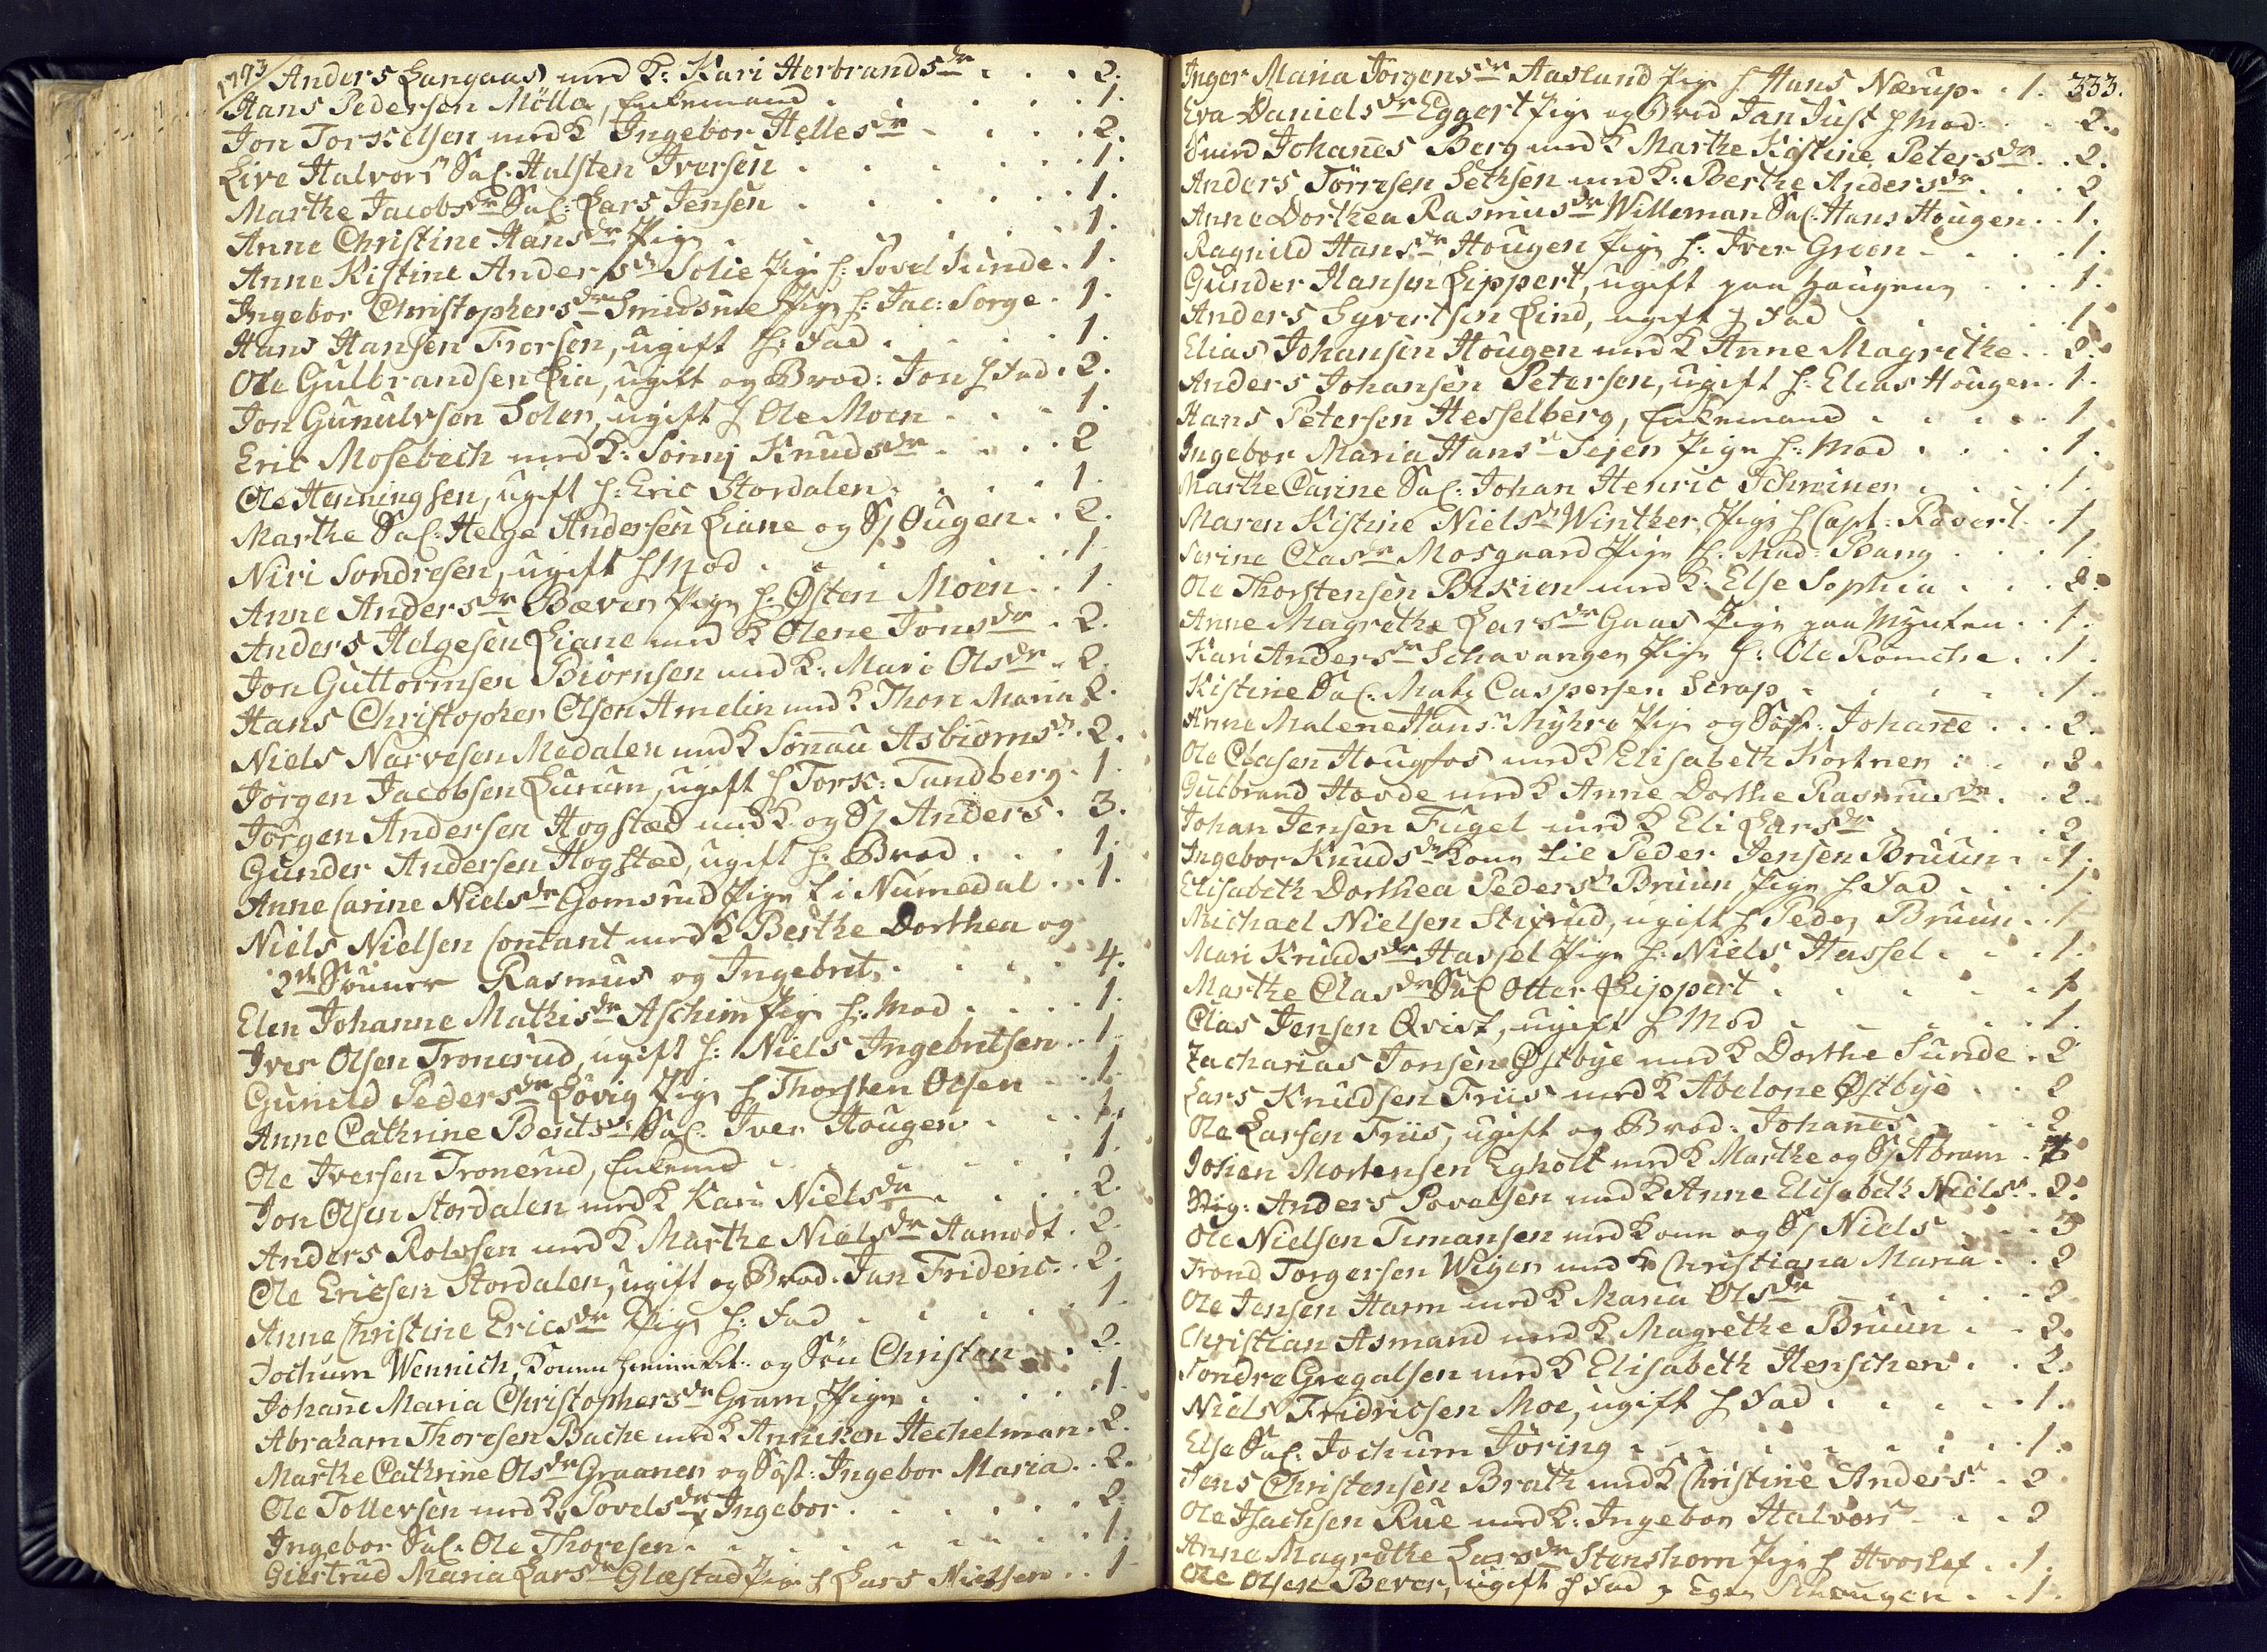 1773
Anders Langaas med K: Kari Herbrandsdr . . . 2.
Hans Pedersen Mølla, Enkemand . . . . 1.
Jon Torkelsen med K Ingebor Hellesdr . . . 2.
Live Halvorsdr Sal: Halsten Iversen . . . . 1.
Marthe Jacobsdr Sal: Lars Jensen . . . . 1.
Anne Christine Hansdr Pige . . . . 1.
Anne Kistine Andersdr Solie Pige h: Povel Sunde . 1.
Ingebor Christophersdr Smidsrue Pige h: Jac: Sorge . 1.
Hans Hansen Frorsen, ugift h: Fad . . . . 1.
Ole Gulbrandsen Lia, ugift og Brod: Jon h Fad . 2.
Jon Gunulvsen Solem, ugift h Ole Moen . . . 1.
Eric Mosebech med K: Sønnj Knudsdr . . . 2
Ole Henningsen, ugift h: Eric Stordalen . . . 1.
Marthe Sal: Helge Andersen Liane og S/ Ougen . . 2.
Niri Sondresen, ugift h Mod . . . . 1.
Anne Andersdr Bæver Pige h: Østen Moen . . 1.
Anders Helgesen Liane med K Olene Jonsdr . 2.
Jon Guttormsen Biørnsen med K: Mari Olsdr . 2.
Hans Christopher Olsen Amelin med K Thore Maria 2.
Niels Narvesen Medalen med K Sønau Asbiørnsdr . 2.
Jørgen Jacobsen Lurum, ugift h Tork: Tandberg . 1.
Jørgen Andersen Hogstæd med K og S/ Anders . 3.
Gunder Andersen Hogstæd, ugift h: Brod . . . 1.
Anne Carine Nielsdr Gomsrud Pige h i Numedal . . 1.
Niels Nielsen Contant med K Berthe Dorthea og
2de Sønner Rasmus og Ingebret . . . . 4.
Elen Johanne Mathisdr Aschim Pige h: Mod . . . 1.
Iver Olsen Tronerud, ugift h: Niels Ingebritsen . . 1.
Gunild Pedersdr Løvig Pige h Thorsten Olsen . . 1.
Anne Cathrine Bentsdr Sal: Iver Hougen . . . 1.
Ole Iversen Tronerud, Enkemd . . . . 1.
Jon Olsen Stordalen med K Kari Nielsdr . . . 2.
Anders Rolvsen med K Marthe Nielsdr Aamodt . 2.
Ole Ericsen Stordalen, ugift og Brod. Jan Frideric . . 2.
Anne Christine Ericsdr Pige h: Fad . . . . 1.
Jochum Wennich, Konen og Søn Christen . . 2.
Johane Maria Christophersdr Gram, Pige . . . . 1.
Abraham Thoresen Bache med K Anniken Hechelman . 2.
Marthe Cathrine Olsdr Graanen og Søst: Ingebor Maria . . 2.
Ole Tollevsen med K Povelsdr Ingebor . . . . 2.
Ingebor Sal. Ole Thoresen . . . . . 1.
Giertrud Maria Larsdr Glæstad Pige h Lars Nielsen . . 1
Inger Maria Jørgensdr Aasland Pige h Hans Nærup . . 1. 333.
Eva Danielsdr Eggert Pige og Brod Jan Just h Mod . . . 2.
Smed Johanes Berg med K Marthe Kistine Petersdr . . 2.
Anders Tørresen Sethsen med K: Berthe Andersdr . . . 2
Anne Dorthea Rasmusdr Willeman Sal: Hans Hougen . . 1.
Ragnild Hansdr Hougen Pige h: Iver Green . . . . 1.
Gunder Hansen Lippert, ugift paa Haugen . . . 1.
Anders Syvertsen Lind, ugift h Fad . . . . 1.
Elias Johansen Hougen med K Anne Magrethe . . 2.
Anders Johansen Petersen, ugift h: Elias Hougen . 1.
Hans Petersen Hesselberg, Enkemand . . . . 1.
Ingebor Maria Hansdr Sejen Pige h: Mod . . . . 1.
Marthe Carine Sal: Johan Henric Schreiner . . . 1.
Maren Kistine Nielsdr Winther, Pige h Capt: Ravert . . 1.
Serine Clasdr Mosgaard Pige h: Mad: Bang . . . 1.
Ole Thorstensen Bekien med K: Else Sophia . . . 2.
Anne Magrethe Larsdr Gaas Pige paa Mynten . . 1.
Kari Andersdr Schavangen Pige h: Ole Rømche . . 1.
Kistine Sal: Matz Caspersen Scrap . . . . 1.
Anne Malene Hansdr Myhre Pige og Søst: Johane . . . 2.
Ole Clasen Hougfos med K Elisabeth Kortner . . . 2.
Gulbrand Hovde med K Anne Dorthe Rasmusdr . . 2.
Johan Jensen Fugel med K Eli Larsdr . . . . 2
Ingebor Knudsdr Kone til Peder Jensen Bruun . . 1.
Elisabeth Dorthea Pedersdr Bruun Pige h Fad . . . 1.
Michael Nielsen Stifrud, ugift h Peder Bruun . . 1
Mari Knudsdr Hassel Pige h: Niels Hassel . . . 1.
Marthe Clasdr Sal Otter Lippert . . . . 1
Clas Jensen Qvist, ugift h Mod . . . . . 1.
Zacharias Jonsen Østbye med K Dorthe Sunde . 2
Lars Knudsen Friis med K Abelone Østbye . . 2
Ole Larsen Friis, ugift og Brod: Johanes . . . 2
Johan Mortensen Egholt med K Marthe og S/ Abram .
Stig: Anders Povelsen med K Anne Elisabeth Nielsdr . 2.
Ole Nielsen Timansen med Kone og S/ Niels . . . 3
Trond Torgersen Weyer med K Christiana Maria . . 2
Ole Jensen Harm med K Maria Olsdr . . . . 2
Christian Asmand med K Magrethe Bruun . . 2.
Sondre Gregalsen med K Elisabeth Henschen . . 2.
Niels Fridricsen Moe, ugift h Fad . . . . 1.
Else Sal: Jochum Jøring . . . . . 1.
Jens Christensen Brath med K Christine Andersdr . 2
Ole Isachsen Rue med K: Ingebor Halvorsdr . . . 2
Anne Magrethe Larsdr Stenshorn Pige h Hvoslef . . 1.
Ole Olsen Bever, ugift h Fad . . 1.